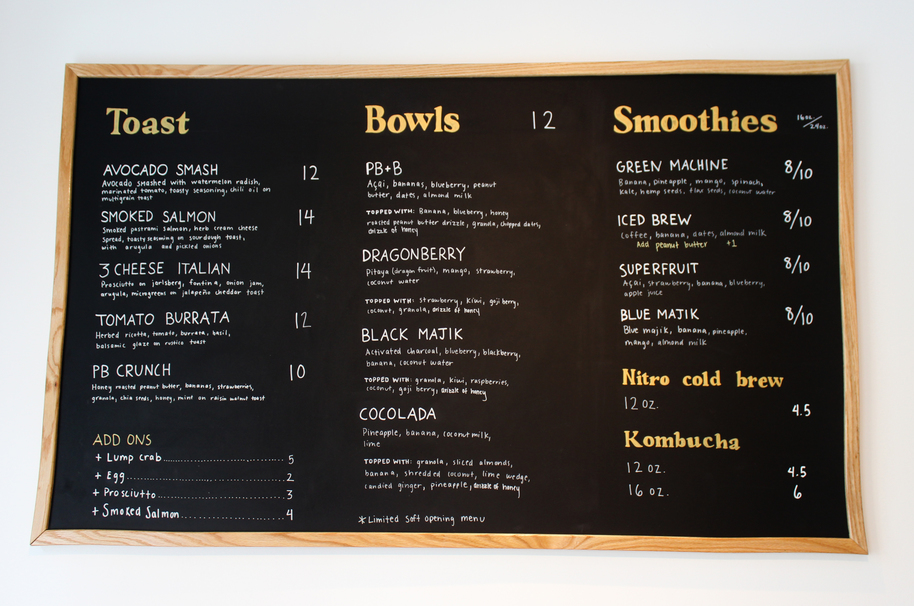 Toast
AVOCADO SMASH 12
Avocado smashed with watermelon radish,
marinated tomato, toasty seasoning, chili oil on
multigrain toast
SMOKED SALMON 14
Smoked pastrami salmon, herb cream cheese
Spread, toasty seasoning on sourdough toast,
with arugula and pickled onions
3 CHEESE ITALIAN 14
Prosciutto on jarlsberg, fontina, onion jam,
arugula, microgreens on jalapeño cheddar toast
TOMATO BURRATA 12
Herbed ricotta, tomato, burrata, basil,
balsamic glaze on rustico toast
PB CRUNCH 10
Honey roasted peanut butter, bananas, strawberries,
granola, chia seeds, honey, mint on raisin walnut toast
ADD ONS
+ Lump crab 5
+ Egg 2
+ Prosciutto 3
+ Smoked Salmon 4
Bowls 12
PB+B
Açai, bananas, blueberry, peanut
butter, dates, almond milk
TOPPED WITH: Banana, blueberry, honey
roasted peanut butter drizzle, granola, chopped dates,
drizzle of honey
DRAGONBERRY
Pitaya (dragon fruit), mango, strawberry,
coconut water
TOPPED WITH: strawberry, kiwi, goji berry,
coconut, granola, drizzle of honey
BLACK MAJIK
Activated charcoal, blueberry, blackberry,
banana, coconut water
TOPPED WITH: granola, kiwi, raspberries,
coconut, goji berry, drizzle of honey
COCOLADA
Pineapple, banana, coconut milk,
lime
TOPPED WITH: granola, sliced almonds,
banana, shredded coconut, lime wedge,
candied ginger, pineapple, drizzle of honey
*Limited soft opening menu
Smoothies 16oz/24oz.
GREEN MACHINE 8/10
Banana, pineapple, mango, spinach,
kale, hemp seeds, flax seeds, coconut water
ICED BREW 8/10
Coffee, banana, dates, almond milk
Add peanut butter +1
SUPERFRUIT 8/10
Açai, strawberry, banana, blueberry,
apple juice
BLUE MAJIK 8/10
Blue majik, banana, pineapple,
mango, almond milk
Nitro cold brew
12 oz. 4.5
Kombucha
12 oz. 4.5
16 oz. 6